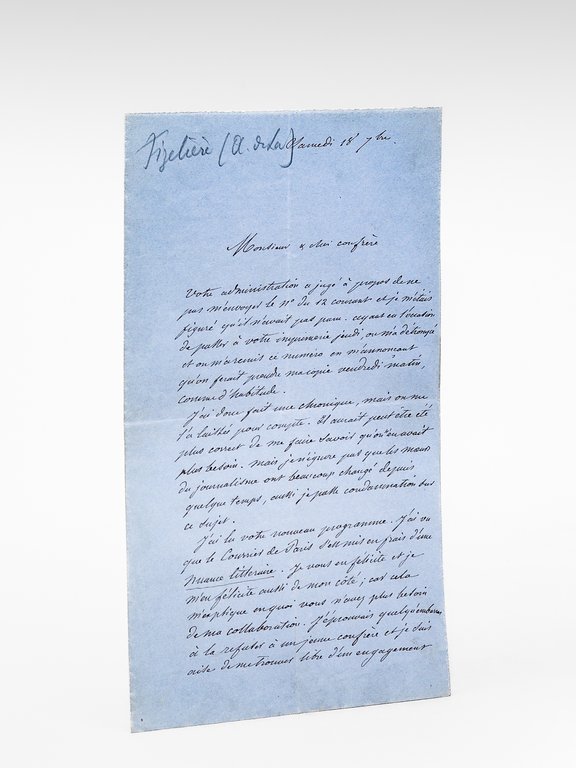 Fizelière (A. de La)
Samedi 18 7bre.
Monsieur & cher confrère
Votre administration a jugé à propos de ne
pas m'envoyer le no du 12 courant et je m'étais
figuré qu'il n'avait pas paru. ayant eu l'occasion
de passer à votre imprimerie jeudi, on m'a détrompé
et on m'a remis ce numero en m'annonçant
qu'on ferait prendre ma copie vendredi matin,
comme d'habitude.
J'ai donc fait une chronique, mais on me
l'a laissée pour compte. Il aurait peut être été
plus correct de me faire savoir qu'on n'en avait
plus besoin. Mais je n'ignore pas que les mœurs
du journalisme ont beaucoup changé depuis
quelque temps, aussi je passe condamnation sur
ce sujet.
J'ai lu votre nouveau programme. J'ai vu
que le Courrier de Paris s'est mis en frais d'une
nuance littéraire. Je vous en félicite et je
m'en félicite aussi de mon côté; car cela
m'explique en quoi vous n'avez plus besoin
de ma collaboration. J'éprouvais quelqu'embarras
à la refuser à un jeune confrère et je suis
aise de me trouver libre d'un engagement